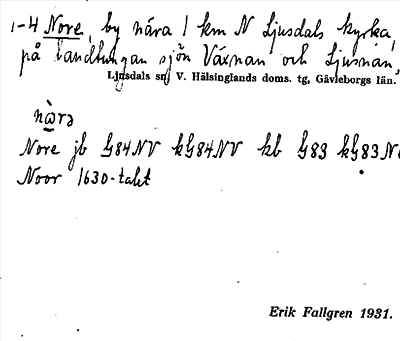 1-4 Nore, by nära 1 km N Ljusdals kyrka,
på landtungan sjön Växnan och Ljusnan,
Ljusdals sn, V. Hälsinglands doms. tg, Gävleborgs län.
Nore jb G84NV kG84NV kb G83 kG83
Noor 1630-talet
Erik Fallgren 1931.